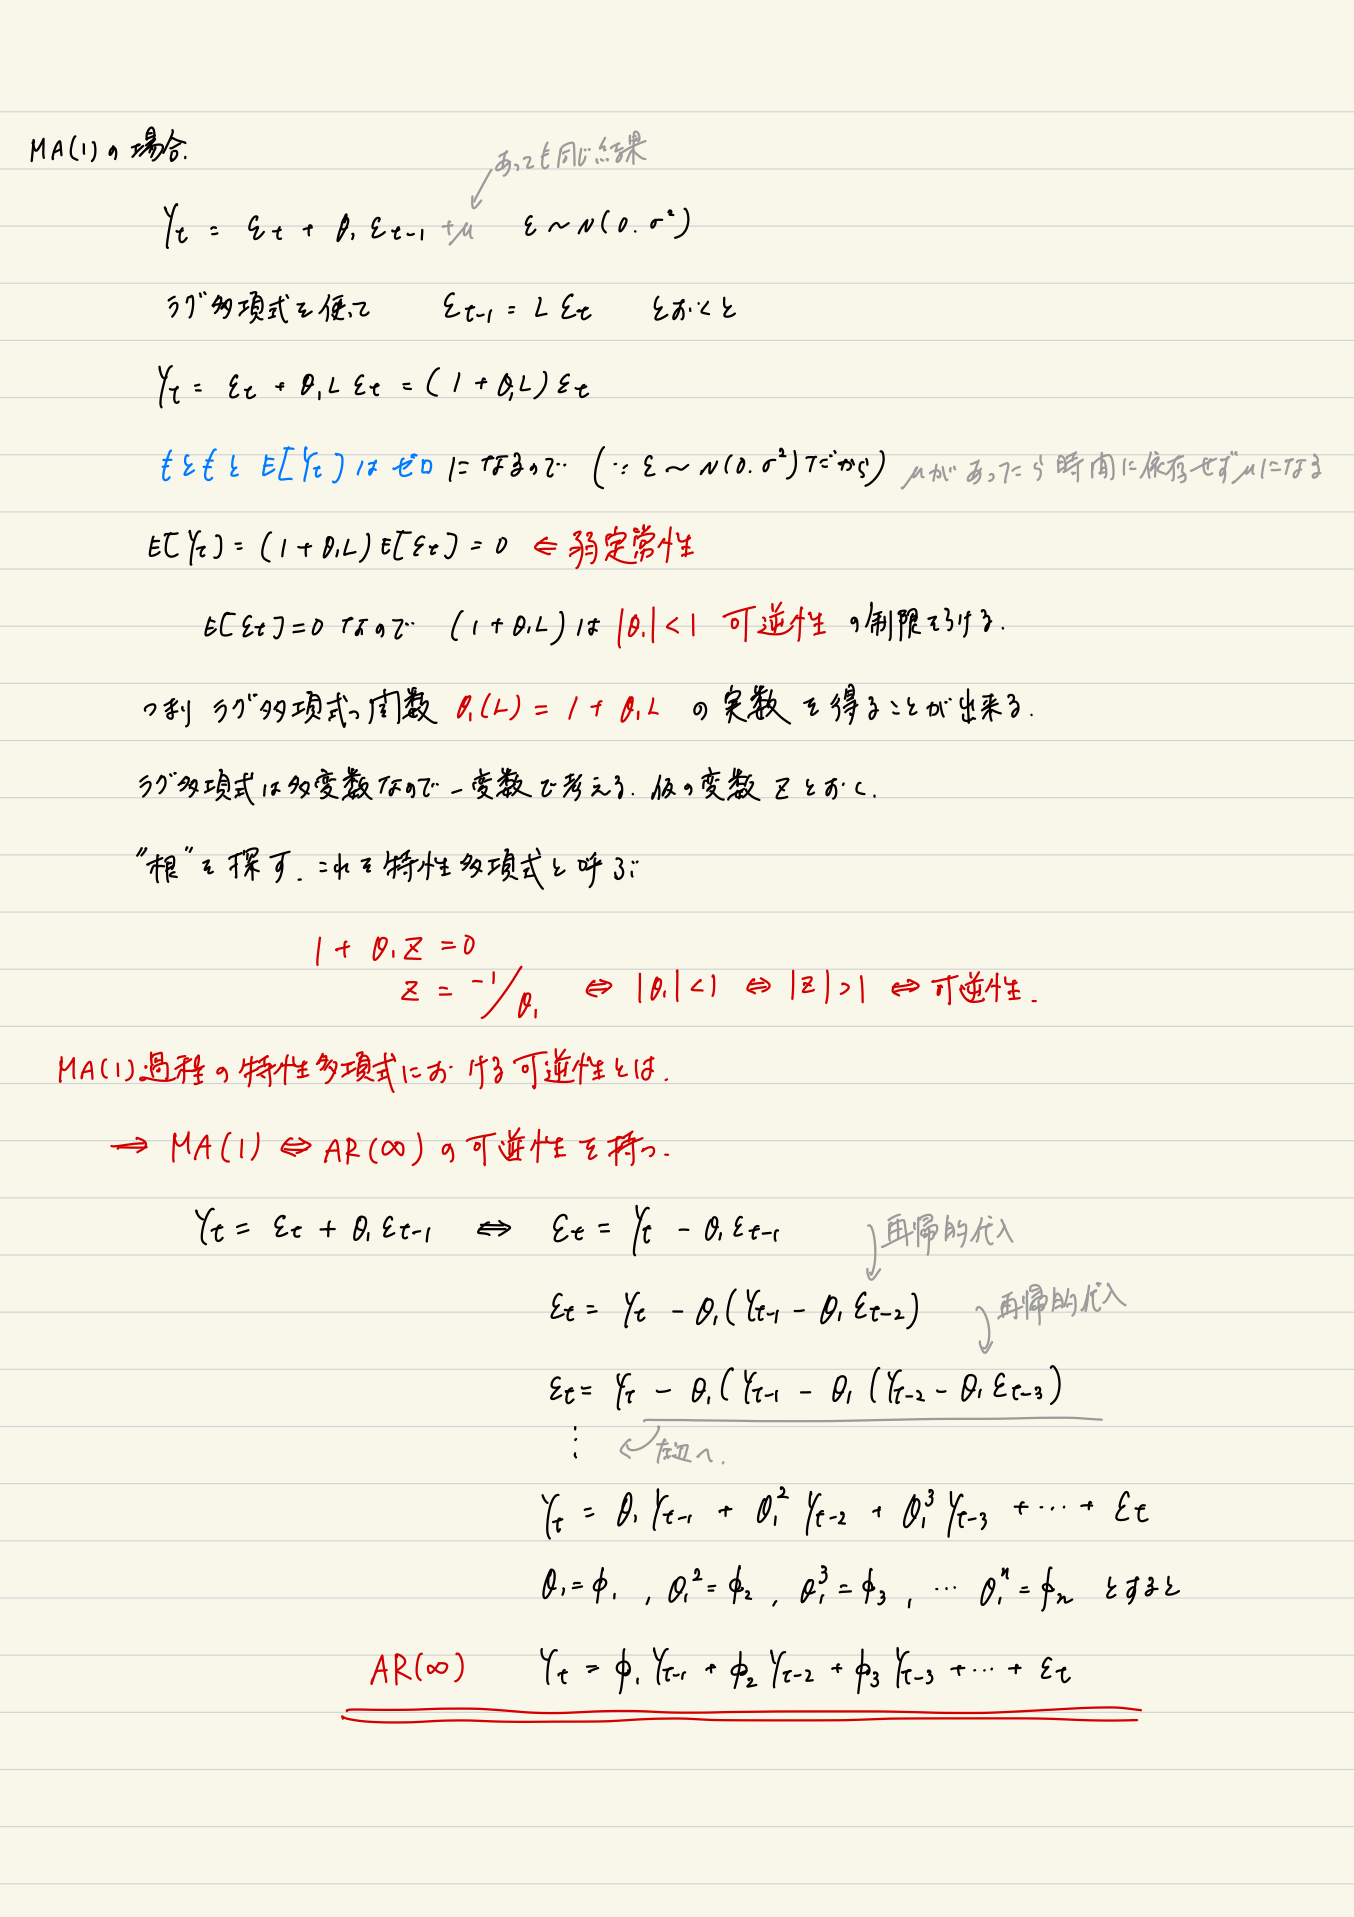 MA(1)の場合.
あっても同じ結果
Yt = εt + θ1 εt-1 +μ ε ~ N(0.σ²)
ラグ多項式を使って εt-1 = L εt とおくと
Yt = εt + θ1L εt = (1 + θ1L) εt
もともと E[Yt] はゼロになるので (∵ ε ~ N(0.σ²)だから) μがあったら時間に依存せずμになる
E[Yt] = (1 + θ1L) E[εt] = 0 ⇐ 弱定常性
E[εt] = 0 なので (1 + θ1L) は |θ1| < 1 可逆性 の制限をうける.
つまり ラグ多項式っ関数 θ1(L) = 1 + θ1L の実数を得ることが出来る.
ラグ多項式は多変数なので一変数で考える. 仮の変数 Z とおく.
"根"を探す. これを特性多項式と呼ぶ
1 + θ1Z = 0
Z = -1/θ1 ⇔ |θ1| < 1 ⇔ |Z| > 1 ⇔ 可逆性.
MA(1)過程の特性多項式における可逆性とは.
⇒ MA(1) ⇔ AR(∞) の可逆性を持つ.
Yt = εt + θ1 εt-1 ⇔ εt = Yt - θ1 εt-1 再帰的代入
εt = Yt - θ1(Yt-1 - θ1 εt-2) 再帰的代入
εt = Yt - θ1(Yt-1 - θ1(Yt-2 - θ1 εt-3)
⋮ 左辺へ.
Yt = θ1 Yt-1 + θ1² Yt-2 + θ1³ Yt-3 + ⋯ + εt
θ1 = φ1 , θ1² = φ2 , θ1³ = φ3 , ⋯ θ1ⁿ = φn とすると
AR(∞) Yt = φ1 Yt-1 + φ2 Yt-2 + φ3 Yt-3 + ⋯ + εt